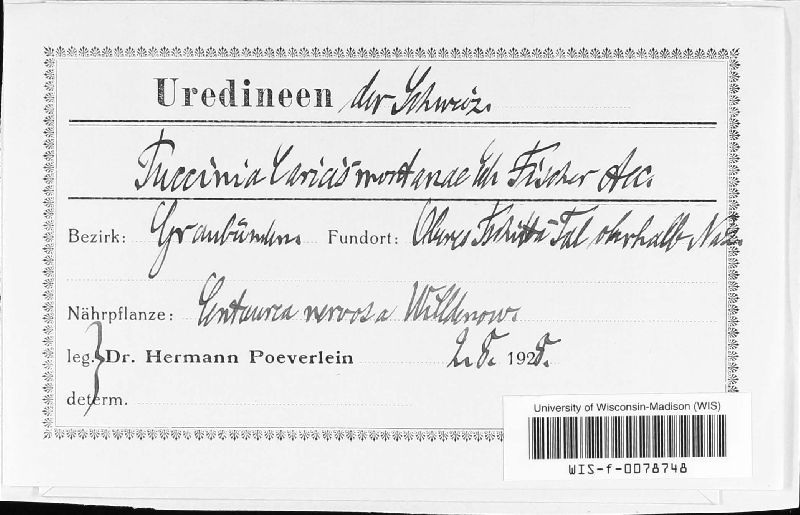 Uredineen der Schweiz.
Puccinia Caricis montanae Ed. Fischer Aec.
Bezirk: Graubünden. Fundort: Oberes Tal oberhalb
Nährpflanze: Centaurea nervosa Willdenow.
leg. Dr. Hermann Poeverlein 2. 8. 1928.
determ.
University of Wisconsin-Madison (WIS)
WIS-f-0078748